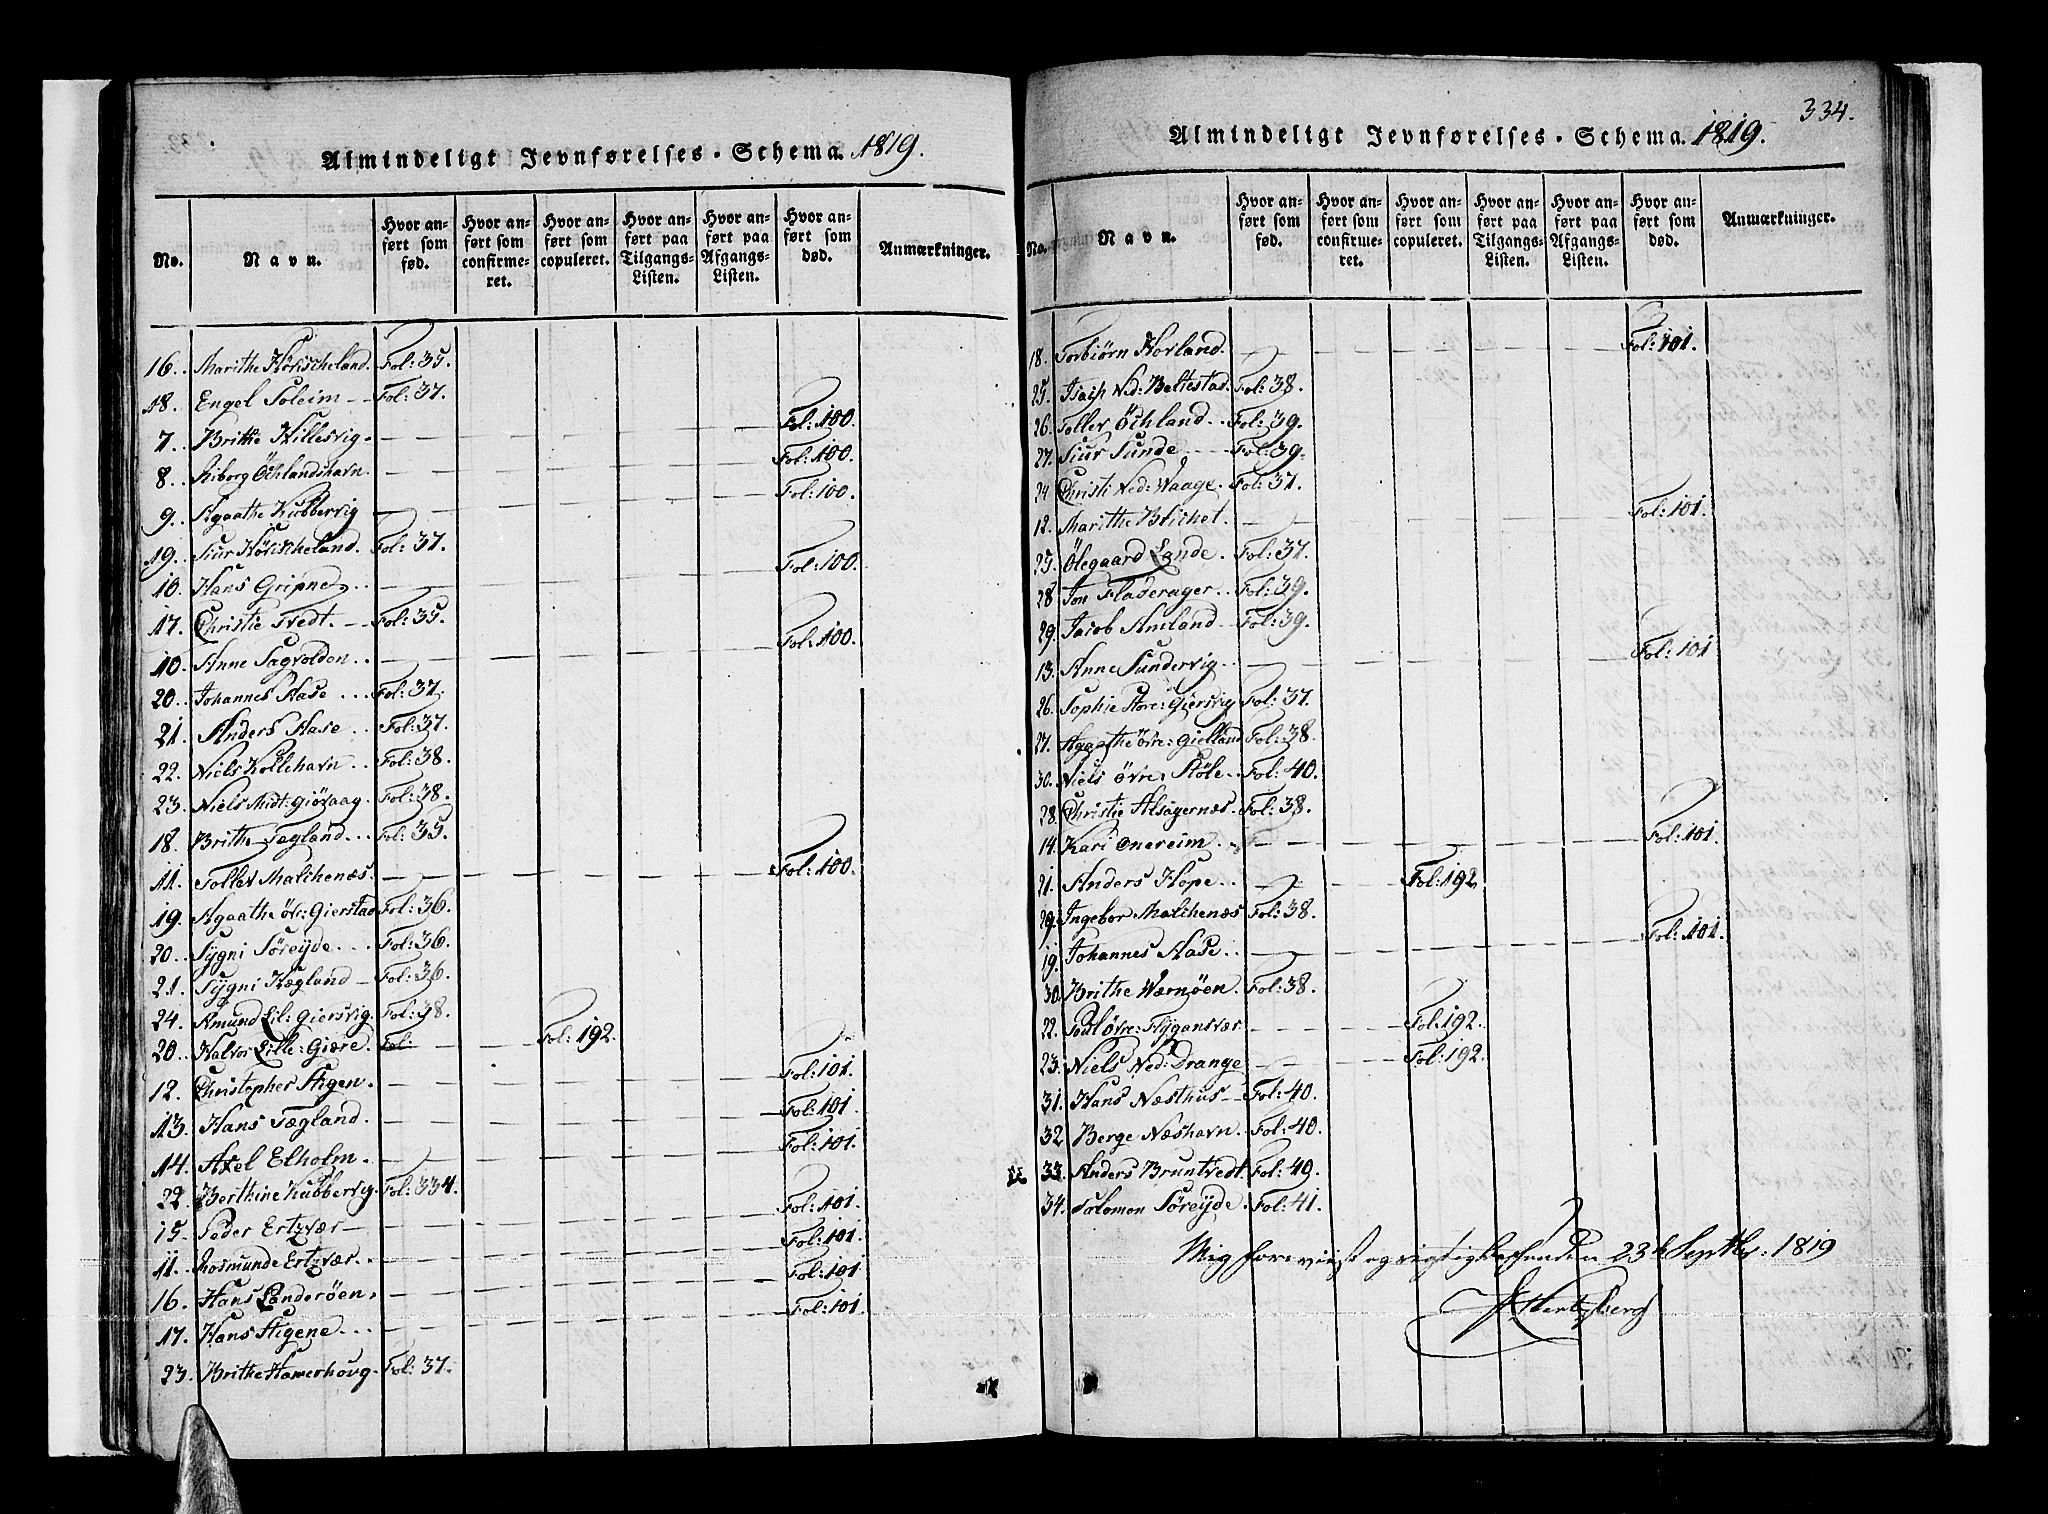 Almindeligt Jevnførelses-Schema. 1819.
No. Navn. Hvor anført som fød. Hvor anført som confirmeret. Hvor anført som copuleret. Hvor anført paa Tilgangs-Listen. Hvor anført paa Afgangs-Listen. Hvor anført som død. Anmærkninger.
16. Marithe Fol: 35.
18. Engel Soleim Fol: 37.
7. Brithe Killesvig Fol: 100.
8. Siborg Öchlandshavn Fol: 100.
9. Agaathe Kubbervig Fol: 100.
19. Siur Fol: 37.
10. Hans Gripne Fol: 100.
17. Christie Tvedt Fol: 35.
10. Anne Sagvolden Fol: 100.
20. Johannes Aase Fol: 37.
21. Anders Aase Fol: 37.
22. Niels Kollehavn Fol: 38.
23. Niels Midt: Giøsaag Fol: 38.
18. Brithe Tægland Fol: 35.
11. Tollev Malchenæs Fol: 100.
19. Agaathe övr: Gierstad Fol: 36.
20. Sygni Söreyde Fol: 36.
21. Sygni Hægland Fol: 36.
24. Amund Lil: Giersvig Fol: 38.
20. Halvor Lille: Giære. Fol: Fol: 192.
12. Christopher Stigen. Fol: 101.
13. Hans Tægland. Fol: 101.
14. Axel Elholm. Fol: 101.
22. Berthine Kubbervig. Fol: 334.
15. Peder Ertzvær Fol: 101.
11. Rosmunde Ertzvær. Fol: 101.
16. Hans Landeröen. Fol: 101
17. Hans Stigene Fol: 101.
23. Brithe Hamerhoug. Fol: 37.
334.
Almindeligt Jevnførelses-Schema. 1819.
No. Navn. Hvor anført som fød. Hvor anført som confirmeret. Hvor anført som copuleret. Hvor anført paa Tilgangs-Listen. Hvor anført paa Afgangs-Listen. Hvor anført som død. Anmærkninger.
18. Torbiörn Horland. Fol: 101.
25. Isach Ned: Beltestad. Fol: 38.
26. Tollev Öchland Fol: 39.
27. Siur Sunde Fol: 39.
24 Christi Ned: Waage. Fol: 37.
12. Marithe Fol: 101.
25. Ölegaard Lande. Fol: 37.
28 Jon Fladerager Fol: 39.
29. Jacob Amland Fol: 39.
13. Anne Sundervig Fol: 101
26. Sophie Store: Giersvig Fol: 37.
27. Agaathe övre: Gielland Fol: 38.
30. Niels övre: Stöle Fol: 40.
28. Christie Alsagernæs. Fol: 38.
14. Kari Onereim Fol: 101.
21. Anders Hope Fol: 192
29. Ingebor Malchenæs Fol: 38.
19. Johannes Aase Fol: 101.
30. Brithe Wernöen. Fol: 38.
22. Poul övre: Flygansvær Fol: 192.
23. Niels Ned: Drange Fol: 192.
31. Hans Næsthus Fol: 40.
32. Berge Næshavn. Fol: 40.
33. Anders Bruntvedt. Fol: 49.
34. Salomon Söreyde. Fol: 41.
Mig foreviist og rigtig befunden 23de Septbr: 1819
Hertzberg